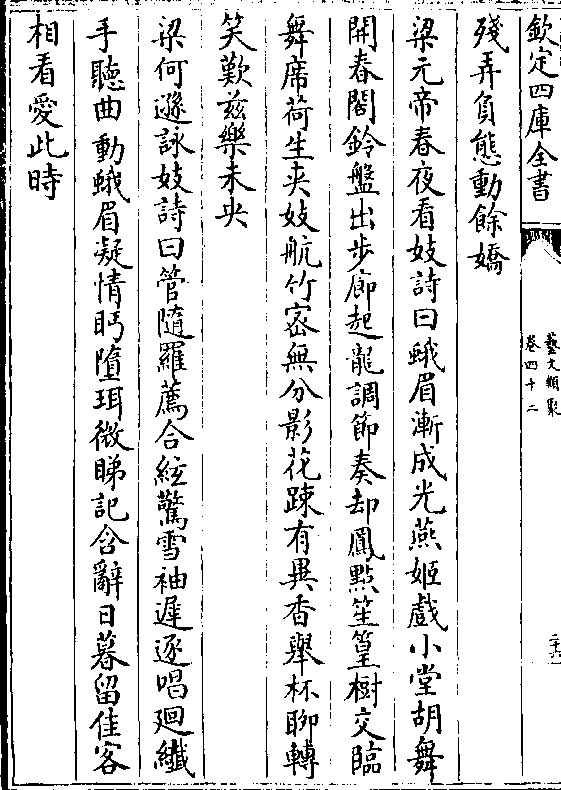 欽定四庫全書
藝文類聚
卷四十二
二十六
殘弄負態動餘嬌
梁元帝春夜看妓詩曰蛾眉漸成光燕姬戲小堂胡舞
開春閣鈴盤出步廊起龍調節奏却鳳點笙簧樹交臨
舞席荷生夾妓航竹密無分影花踈有異香舉杯聊轉
笑歎兹樂未央
梁何遜詠妓詩曰管隨羅薦合絃驚雪袖遲逐唱廻纖
手聽曲動蛾眉凝情眄墮珥微睇記含辭日暮留佳客
相看愛此時